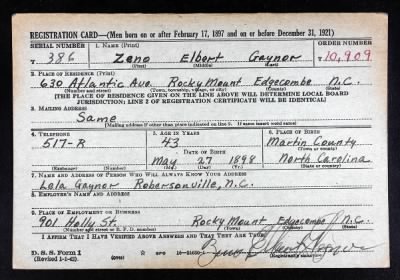 REGISTRATION CARD—(Men born on or after February 17, 1897 and on or before December 31, 1921)
SERIAL NUMBER 1. NAME (Print) ORDER NUMBER
T 386 Zeno Elbert Gaynor T 10,909
(First) (Middle) (Last)
2. PLACE OF RESIDENCE (Print)
630 Atlantic Ave. Rocky Mount Edgecombe N.C.
(Number and street) (Town, township, village, or city) (County) (State)
[THE PLACE OF RESIDENCE GIVEN ON THE LINE ABOVE WILL DETERMINE LOCAL BOARD
JURISDICTION; LINE 2 OF REGISTRATION CERTIFICATE WILL BE IDENTICAL]
3. MAILING ADDRESS
Same
[Mailing address if other than place indicated on line 2. If same insert word same]
4. TELEPHONE 5. AGE IN YEARS 6. PLACE OF BIRTH
517-R 43 Martin County
DATE OF BIRTH (Town or county)
May 27 1898 North Carolina
(Exchange) (Number) (Mo.) (Day) (Yr.) (State or country)
7. NAME AND ADDRESS OF PERSON WHO WILL ALWAYS KNOW YOUR ADDRESS
Lela Gaynor Robersonville, N.C.
8. EMPLOYER'S NAME AND ADDRESS
9. PLACE OF EMPLOYMENT OR BUSINESS
901 Holly St. Rocky Mount Edgecombe N.C.
(Number and street or R. F. D. number) (Town) (County) (State)
I AFFIRM THAT I HAVE VERIFIED ABOVE ANSWERS AND THAT THEY ARE TRUE.
D. S. S. Form 1
(Revised 1-1-42) (over) (Registrant's signature)